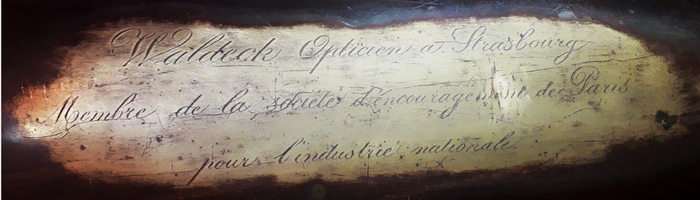 Waldeck Opticien a Strasbourg
Membre de la societé d'encouragement de Paris
pour l'industrie nationale